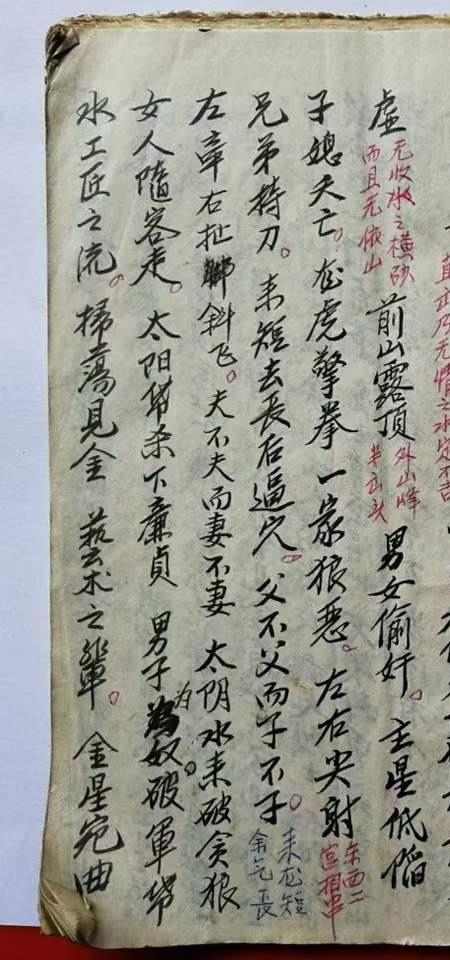 乃无情之水定不吉
虚 无收水之横砂 而且无依山 前山露顶 外山峰 半云头 男女偷奸。主星低陷
子媳夭亡。龙虎擎拳一家狼恶。左右尖射 东西二 宫相冲
兄弟持刀。来短去長后逼穴。父不父而子不子。来龙短 余气長
左牵右扯斜飞。夫不夫而妻不妻 太阴水来破贪狼
女人隨客走。太阳带杀下廉貞 男子为奴。破軍带
水工匠之流。掃蕩見金 藝术之輩。金星宛曲